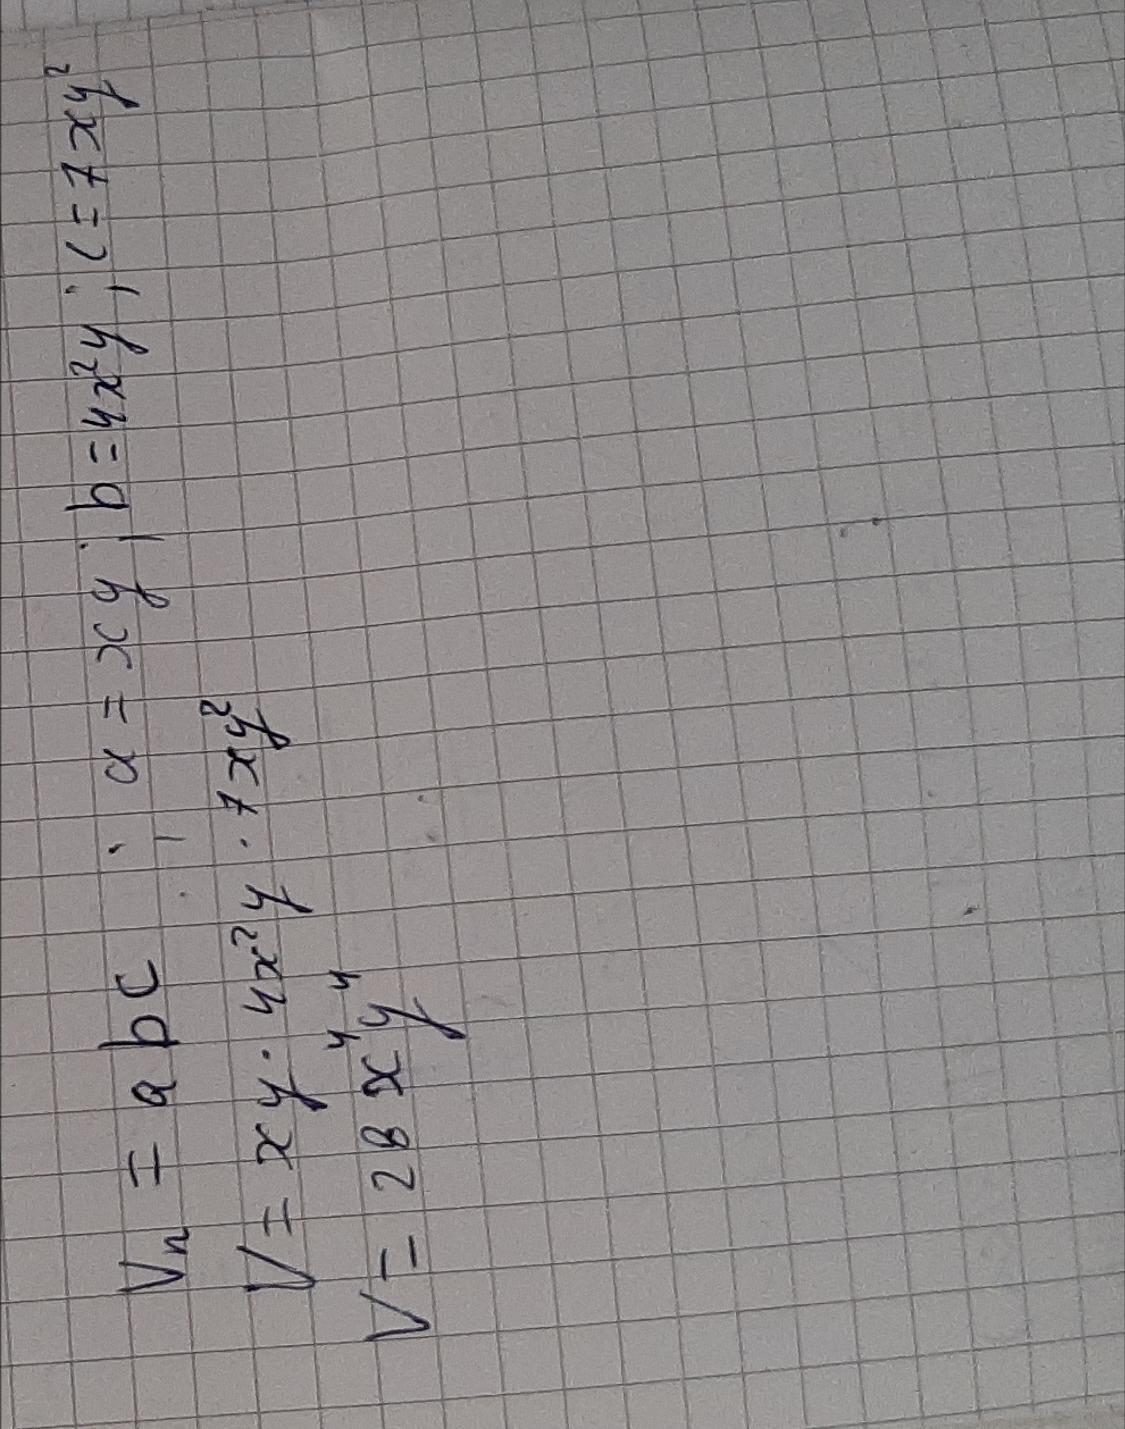 Vп = abc ; a = xy ; b = 4x²y ; c = 7xy²
V = xy · 4x²y · 7xy²
V = 28x⁴y⁴